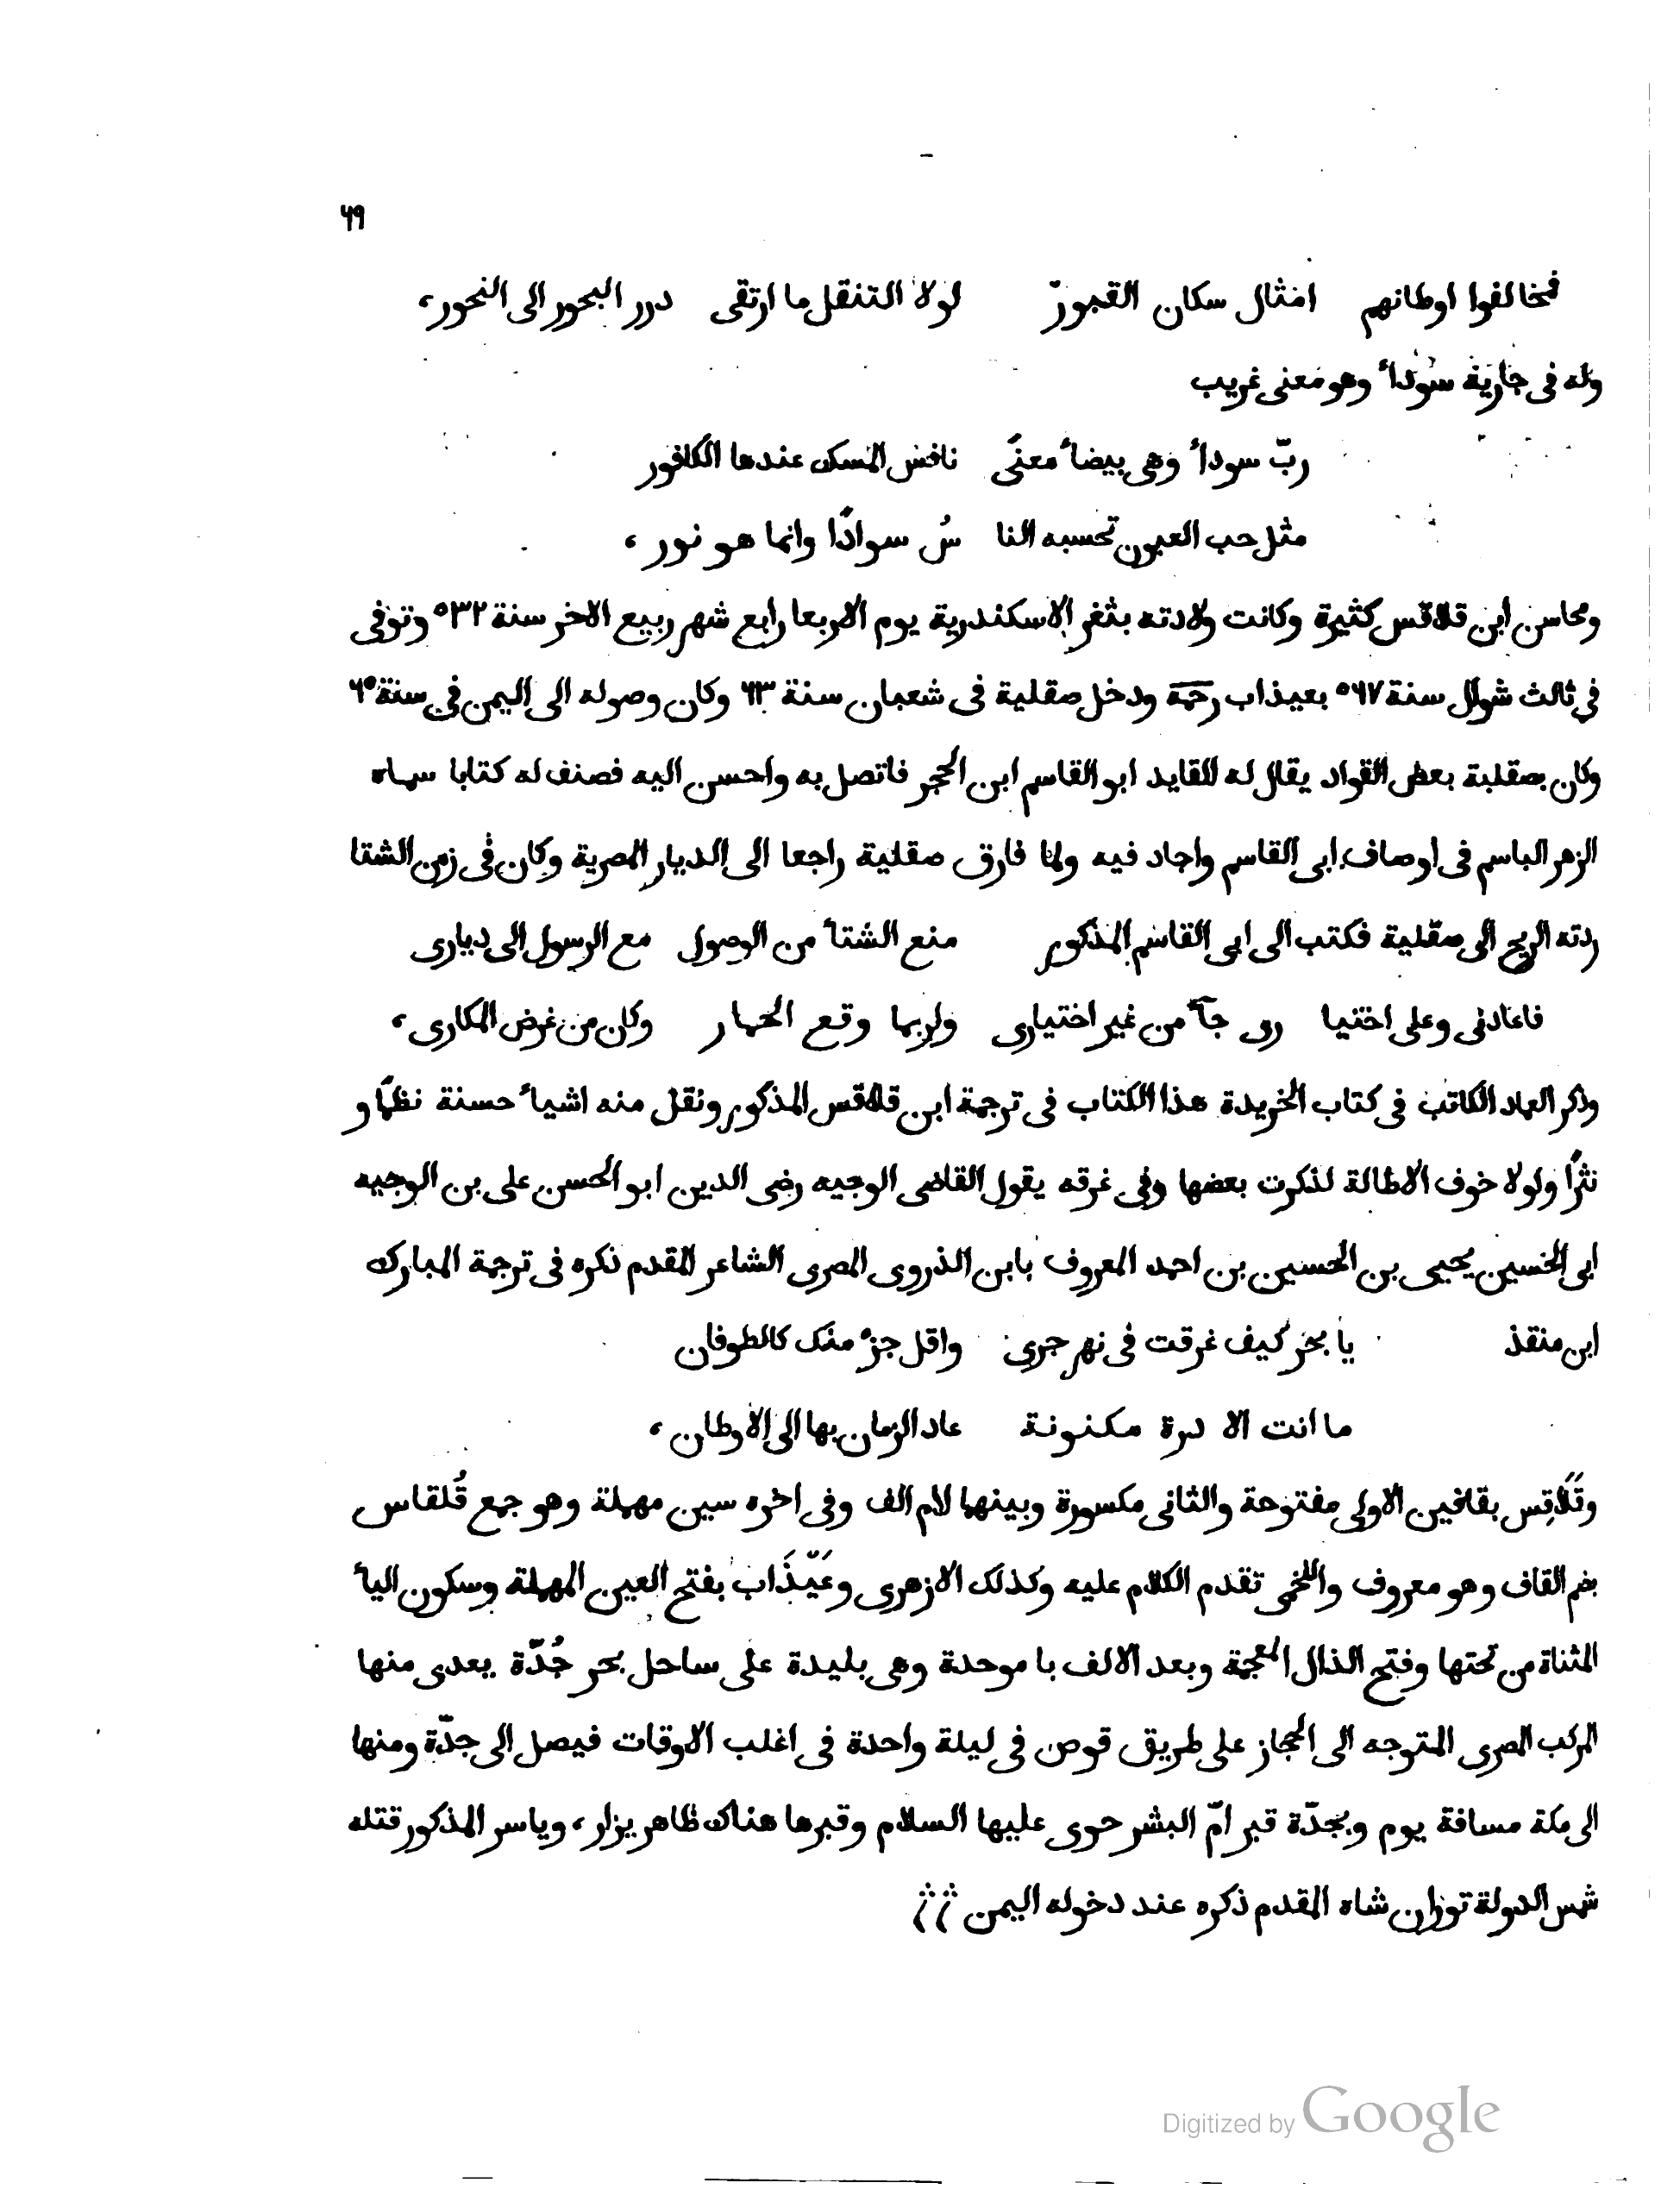 ٦٩
فخالفوا اوطانهم امثال سكان القبور لولا التنقل ما ارتقى درر البحور الى النحور،
وله فى جارية سودأ وهو معنى غريب
ربّ سودأ وهى بيضأ معنًى نافس المسك عندها الكافور
مثل حب العيون تحسبه النا سُ سوادًا وانما هو نور،
ومحاسن ابن قلاقس كثيرة وكانت ولادته بثغر الاسكندرية يوم الاربعا رابع شهر ربيع الاخر سنة ٥٣٢ وتوفى
فى ثالث شوال سنة ٥٦٧ بعيذاب رحمة ودخل صقلية فى شعبان سنة ٦٣ وكان وصوله الى اليمن فى سنة ٦٥
وكان بصقلية بعض القواد يقال له القايد ابو القاسم ابن الحجر فاتصل به واحسن اليه فصنف له كتابا سماه
الزهر الباسم فى اوصاف ابى القاسم واجاد فيه ولما فارق صقلية راجعا الى الديار المصرية وكان فى زمن الشتا
ردته الريح الى صقلية فكتب الى ابى القاسم المذكور منع الشتأ من الوصول مع الرسول الى ديارى
فاعادنى وعلى اختيا رى جآ من غير اختيارى ولربما وقع الحمار وكان من غرض المكارى،
وذكر العماد الكاتب فى كتاب الخريدة هذا الكتاب فى ترجمة ابن قلاقس المذكور ونقل منه اشيأ حسنة نظمًا و
نثرًا ولولا خوف الاطالة لذكرت بعضها وفى غرقه يقول القاضى الوجيه رضى الدين ابو الحسن على بن الوجيه
ابى الحسين يحيى بن الحسين بن احمد المعروف بابن الذروى المصرى الشاعر المقدم ذكره فى ترجمة المبارك
ابن منقذ يا بحر كيف غرقت فى نهر جرى واقل جزء منك كالطوفان
ما انت الا درة مكنونة عاد الزمان بها الى الاوطان،
وقَلَاقِس بقافين الاولى مفتوحة والثانى مكسورة وبينهما لام الف وفى اخره سين مهملة وهو جمع قُلقاس
بضم القاف وهو معروف واللخمى تقدم الكلام عليه وكذلك الازهرى وعَيْذَاب بفتح العين المهملة وسكون اليأ
المثناة من تحتها وفتح الذال المعجمة وبعد الالف با موحدة وهى بليدة على ساحل بحر جُدّة يعدى منها
المركب المصرى المتوجه الى الحجاز على طريق قوص فى ليلة واحدة فى اغلب الاوقات فيصل الى جدّة ومنها
الى مكة مسافة يوم وبجدّة قبر امّ البشر حوى عليها السلام وقبرها هناك ظاهر يزار، وياسر المذكور قتله
شمس الدولة توران شاه المقدم ذكره عند دخوله اليمن
Digitized by Google